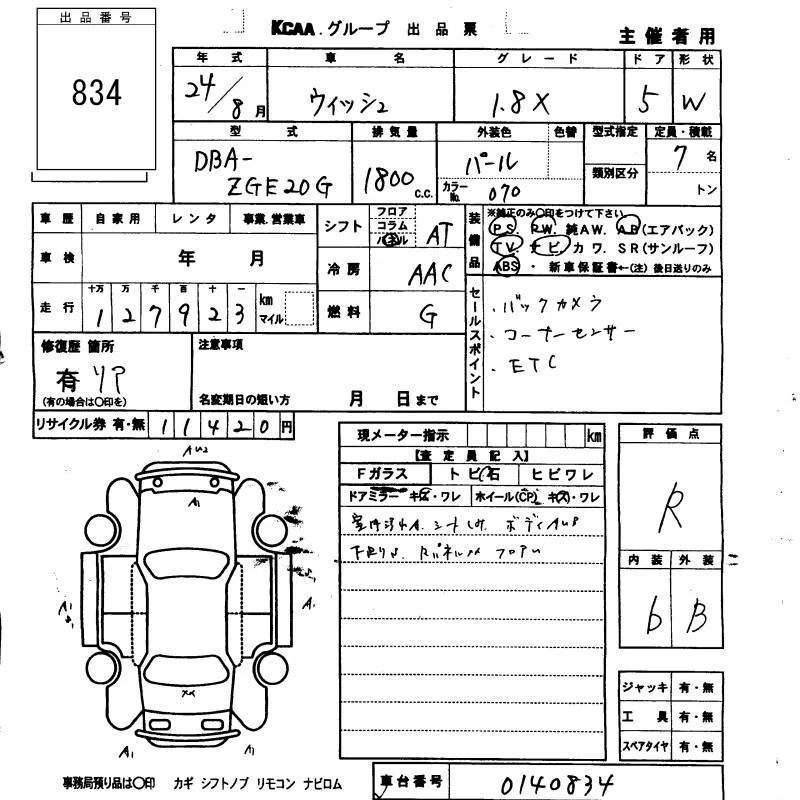 出品番号
834
KCAA.グループ 出品票
主催者用
年式 車名 グレード ドア 形状
24/8月 ウィッシュ 1.8X 5 W
型式 排気量 外装色 色替 型式指定 定員・積載
DBA-
ZGE20G 1800 c.c. パール 7名
カラーNo. 070 類別区分 トン
車歴 自家用 レンタ 事業.営業車
シフト フロア コラム パネル AT
車検 年 月
冷房 AAC
走行 十万 万 千 百 十 一
1 2 7 9 2 3 km マイル
燃料 G
装備品
※純正のみ○印をつけて下さい。
PS. PW. 純AW. AB(エアバック)
TV. ナビ. カワ. SR(サンルーフ)
ABS ・ 新車保証書←(注)後日送りのみ
セールスポイント
・バックカメラ
・コーナーセンサー
・ETC
修復歴 箇所
有 リア
(有の場合は○印を)
注意事項
名変期日の短い方 月 日まで
リサイクル券 有・無 11420円
現メーター指示 km
【査定員記入】
Fガラス トビ石 ヒビワレ
ドアミラー キズ・ワレ ホイール(CP) キズ・ワレ
評価点
R
内装 外装
b B
A1
A1
A1
A1
ジャッキ 有・無
工具 有・無
スペアタイヤ 有・無
事務局預り品は○印 カギ シフトノブ リモコン ナビロム
車台番号 0140834